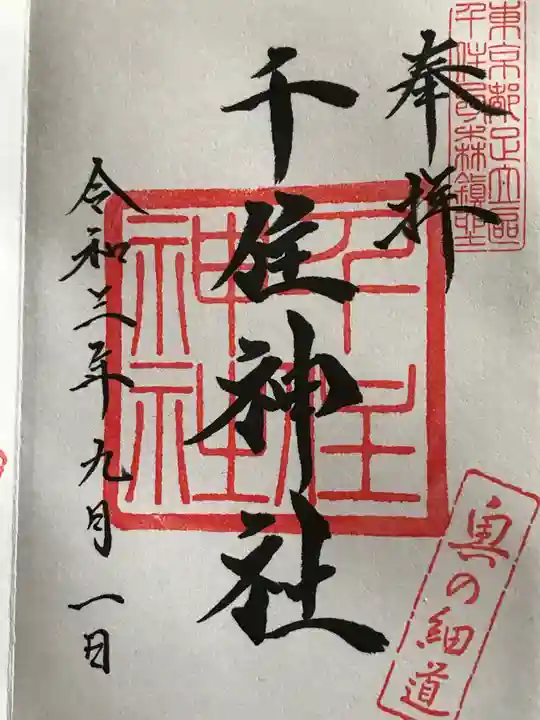 東京都足立区
千住宮森鎮坐
奉拝
千住神社
千住
神社
令和三年九月一日
奥の細道